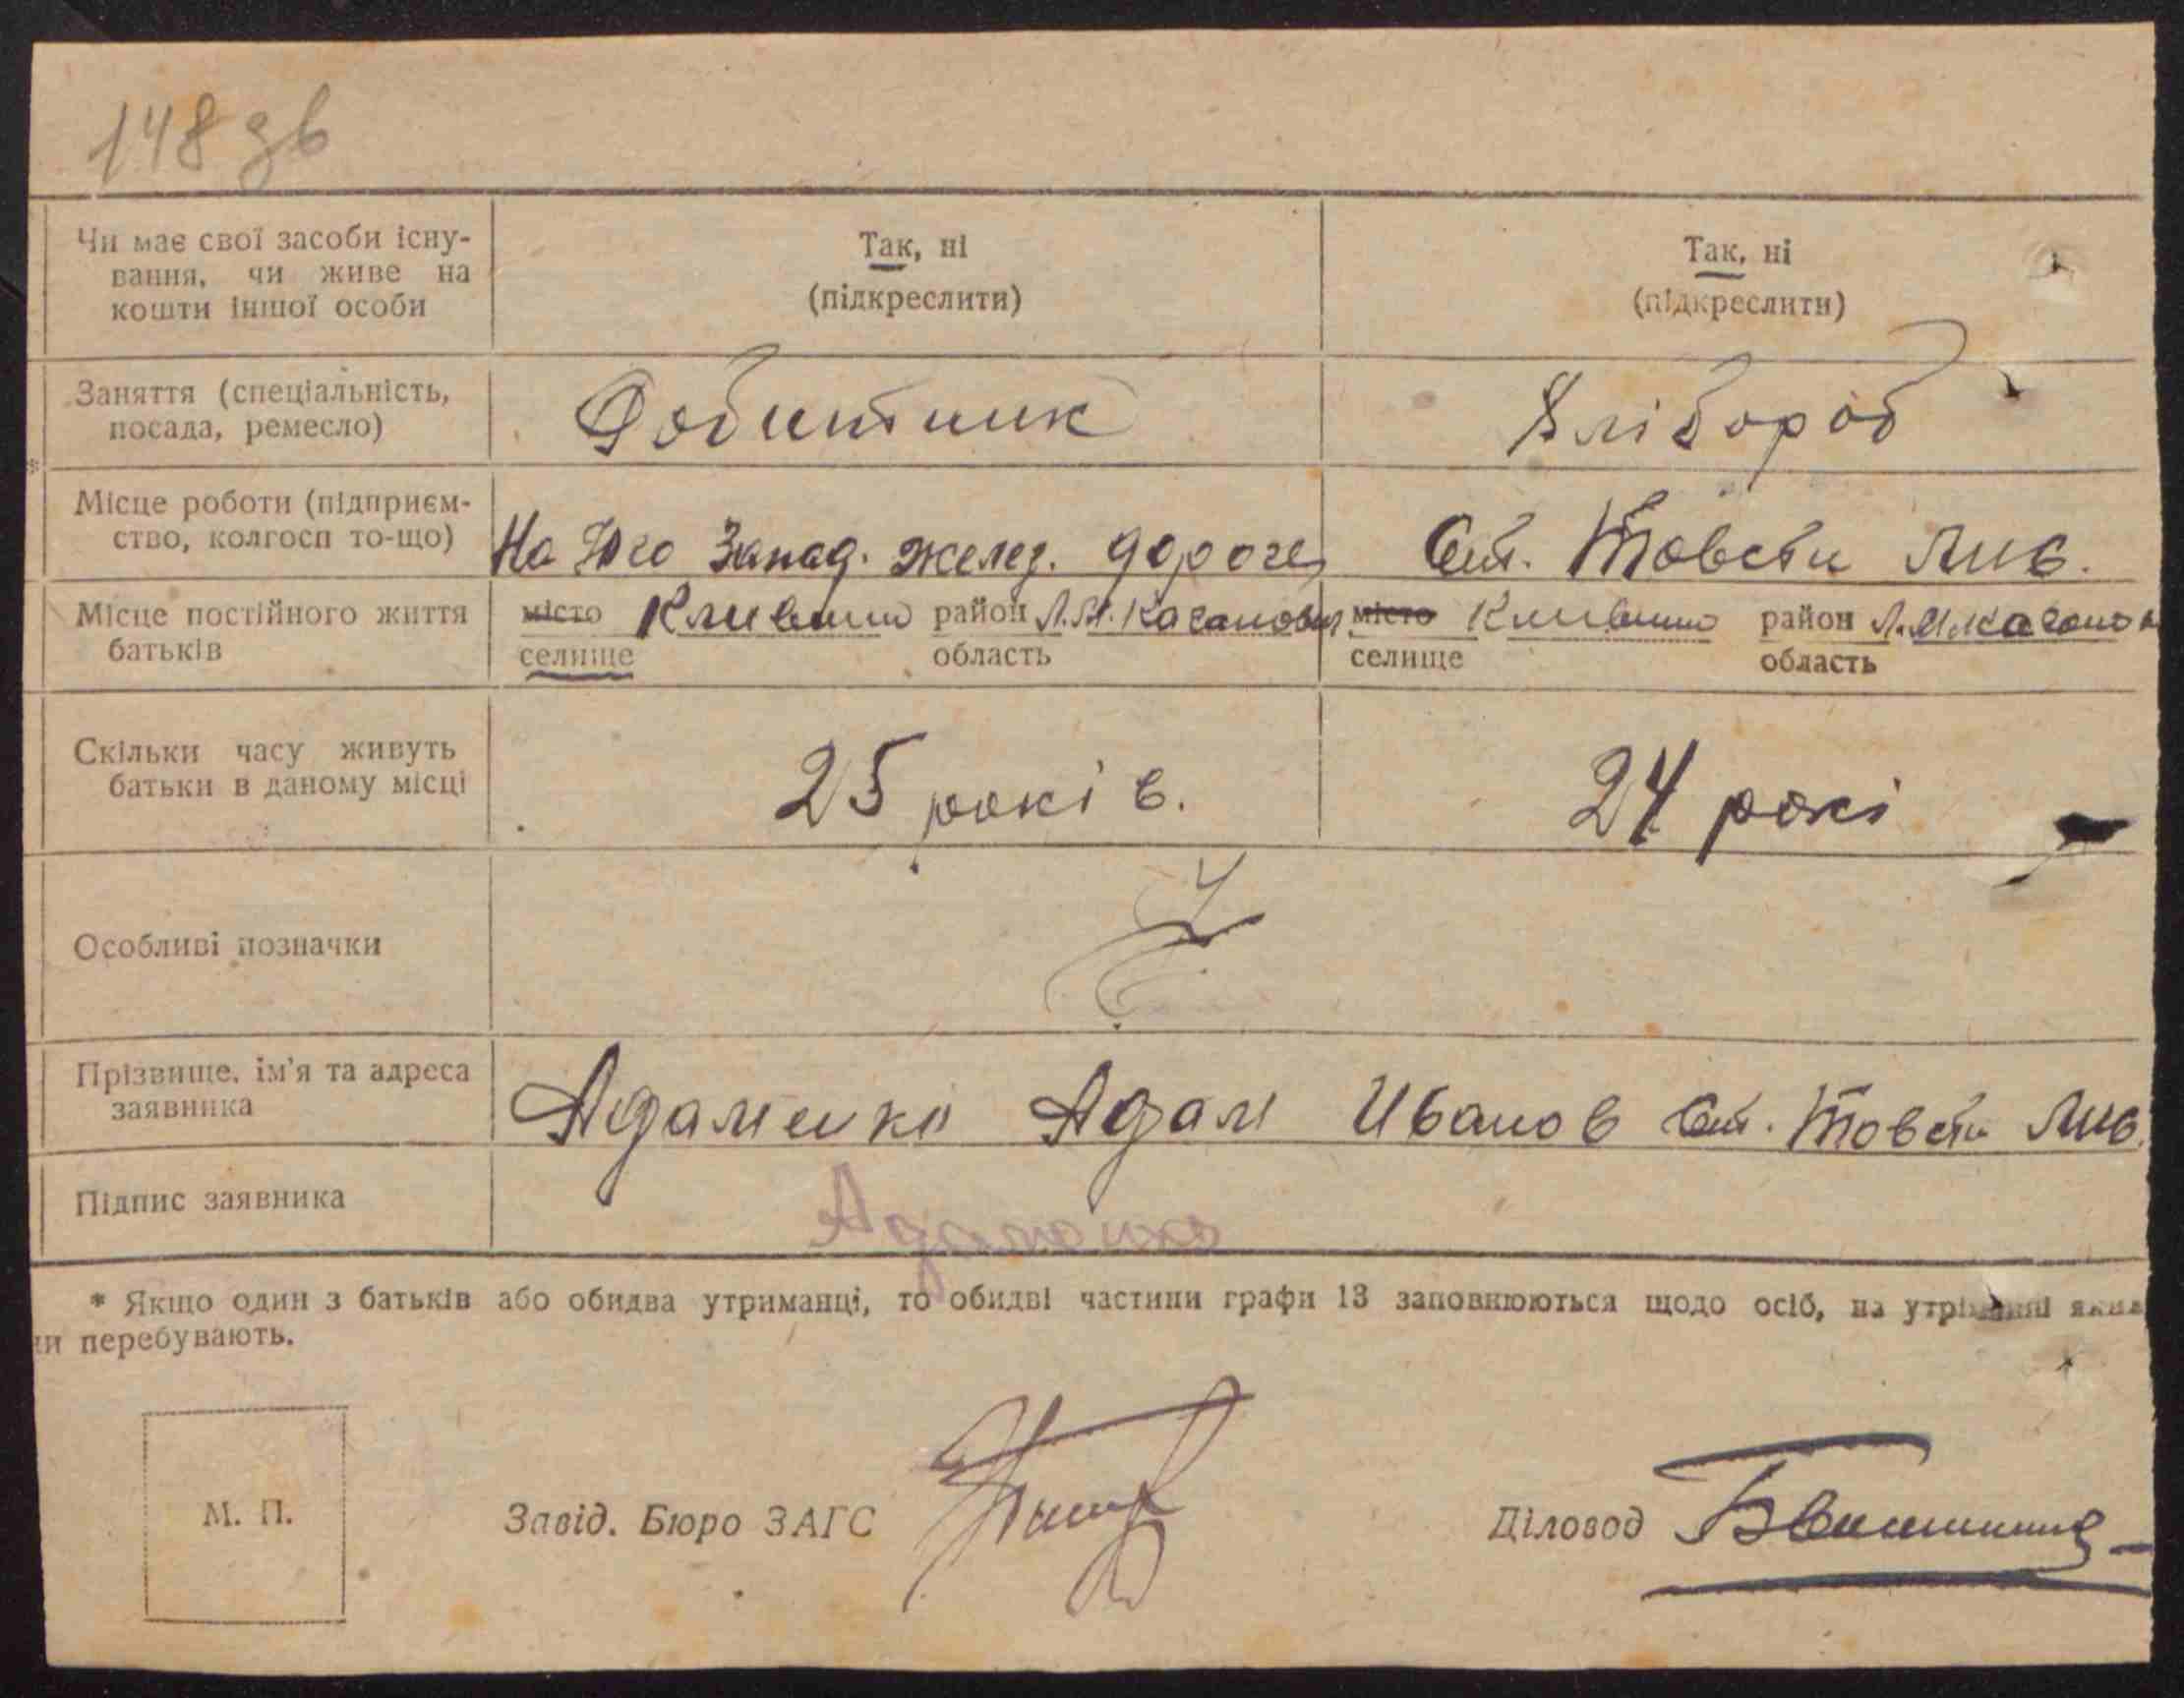 148 зв
Чи має свої засоби існу-
вання, чи живе на
кошти іншої особи
Так, ні
(підкреслити)
Так, ні
(підкреслити)
Заняття (спеціальність,
посада, ремесло)
Робитник
Хлібороб
Місце роботи (підприєм-
ство, колгосп то-що)
На Юго Запад. желез. дороге
Ст. Товсти Лис.
Місце постійного життя
батьків
місто Кливини район Л.М. Каганович
селище область
місто Кливини район Л.М. Каганов
селище область
Скільки часу живуть
батьки в даному місці
25 років.
24 рокі
Особливі позначки
Прізвище, ім'я та адреса
заявника
Адаменко Адам Иванов Ст. Товсти Лис.
Підпис заявника
Адаменко
* Якщо один з батьків або обидва утриманці, то обидві частини графи 13 заповнюються щодо осіб, на утриманні яких
ни перебувають.
М. П.
Завід. Бюро ЗАГС
Діловод